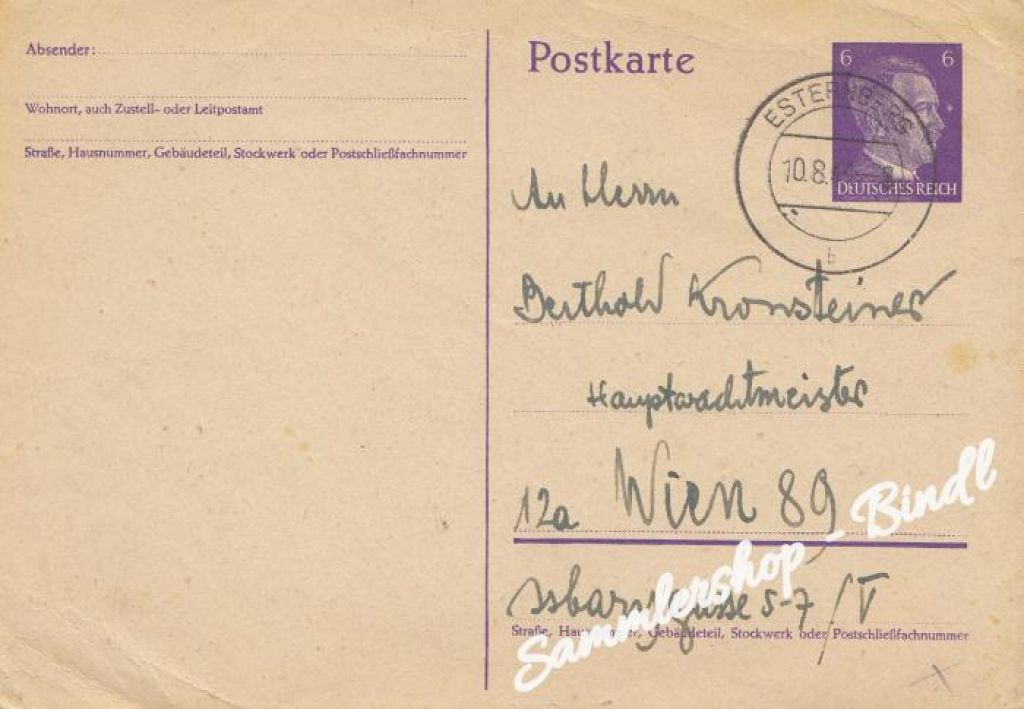 Absender:
Wohnort, auch Zustell- oder Leitpostamt
Straße, Hausnummer, Gebäudeteil, Stockwerk oder Postschließfachnummer
Postkarte
6 6
DEUTSCHES REICH
ESTERNBERG
10.8.
b
An Herrn
Berthold Kronsteiner
Hauptwachtmeister
12a Wien 89
gasse 5-7/V
Straße, Hausnummer, Gebäudeteil, Stockwerk oder Postschließfachnummer
Sammlershop - Bindl